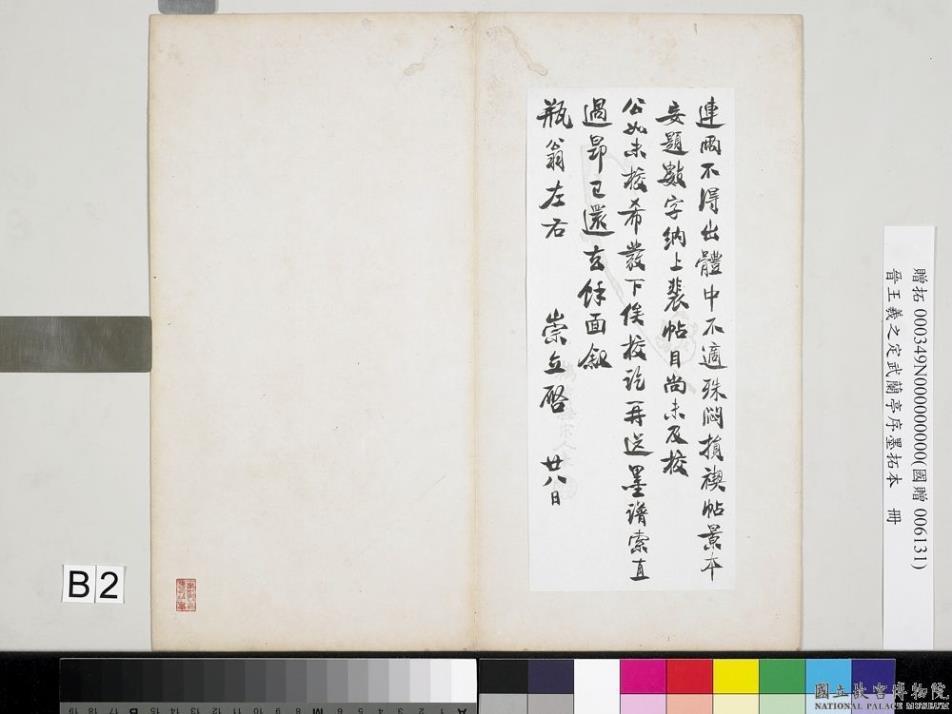 連雨不得出體中不適殊悶損禊帖景本
妄題數字納上裴帖目尚未及校
公如未校希發下俟校訖再送墨譜索直
過昂已還去餘面敘
瓶翁左右 崇立啓 廿八日
贈拓 000349N000000000(國贈 006131)
晉王羲之定武蘭亭序墨拓本 冊
B2
國立故宮博物院
NATIONAL PALACE MUSEUM